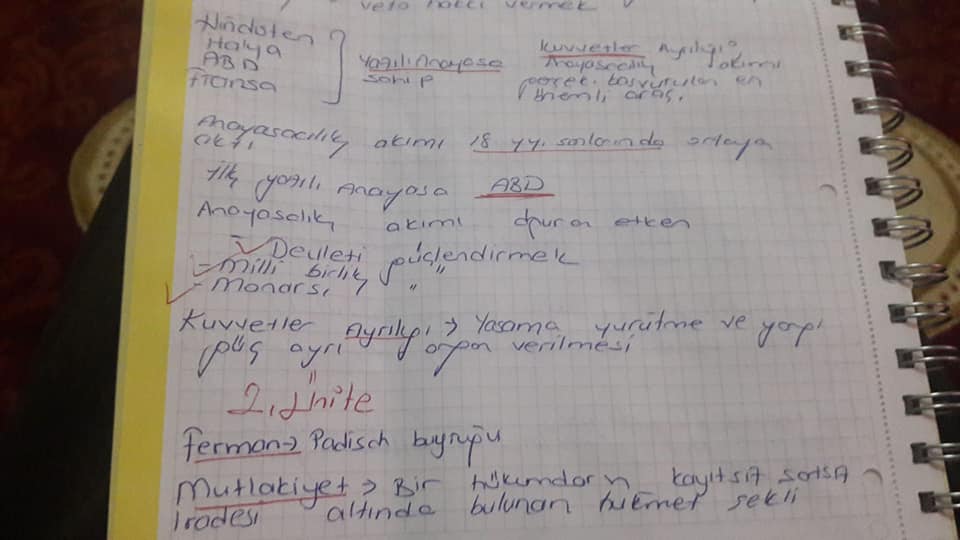 veto hakkı vermek
Hindistan
İtalya
ABD
Fransa
Yazılı Anayasa
sahip
Kuvvetler Ayrılığı,
Anayasacılık akımı
gerek. başvurulan en
önemli araç.
Anayasacılık akımı 18 yy. sonlarında ortaya
çıktı
İlk yazılı Anayasa ABD
Anayasalık akımı etken
- Devleti güçlendirmek
- Milli birlik "
- Monarşi "
Kuvvetler Ayrılığı → Yasama yürütme ve yargı
güç ayrı organ verilmesi
2. Ünite
Ferman → Padişah buyruğu
Mutlakiyet → Bir hükümdarın kayıtsız şartsız
iradesi altında bulunan hükümet şekli